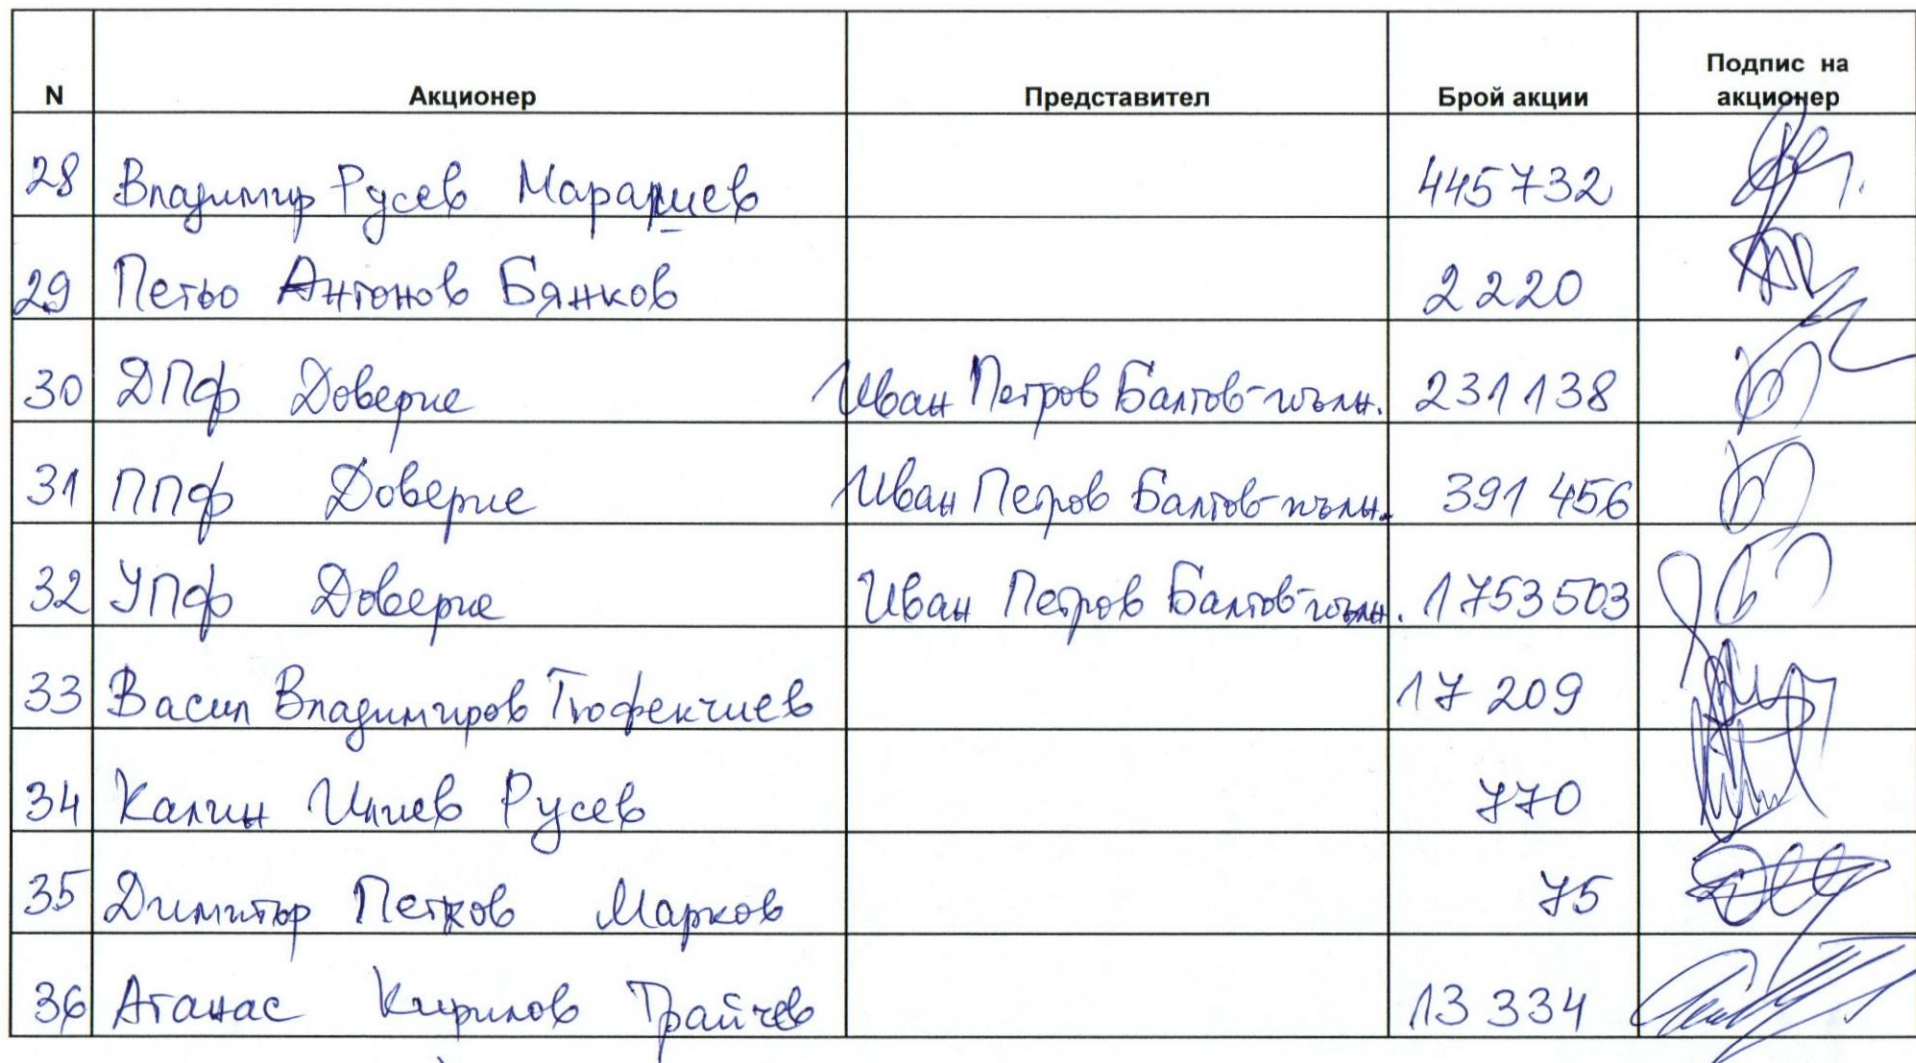 N Акционер Представител Брой акции Подпис на акционер
28 Владимир Русев 445732
29 Петьо Антонов Бянков 2 220
30 ДПФ Доверие Иван Петров Балтов-пълн. 231 138
31 ППФ Доверие Иван Петров Балтов-пълн. 391 456
32 УПФ Доверие Иван Петров Балтов-пълн. 1753503
33 Васил Владимиров Тюфекчиев 17 209
34 Калин Илиев Русев 770
35 Димитър Петков Марков 75
36 Атанас Кирилов Трайчев 13 334